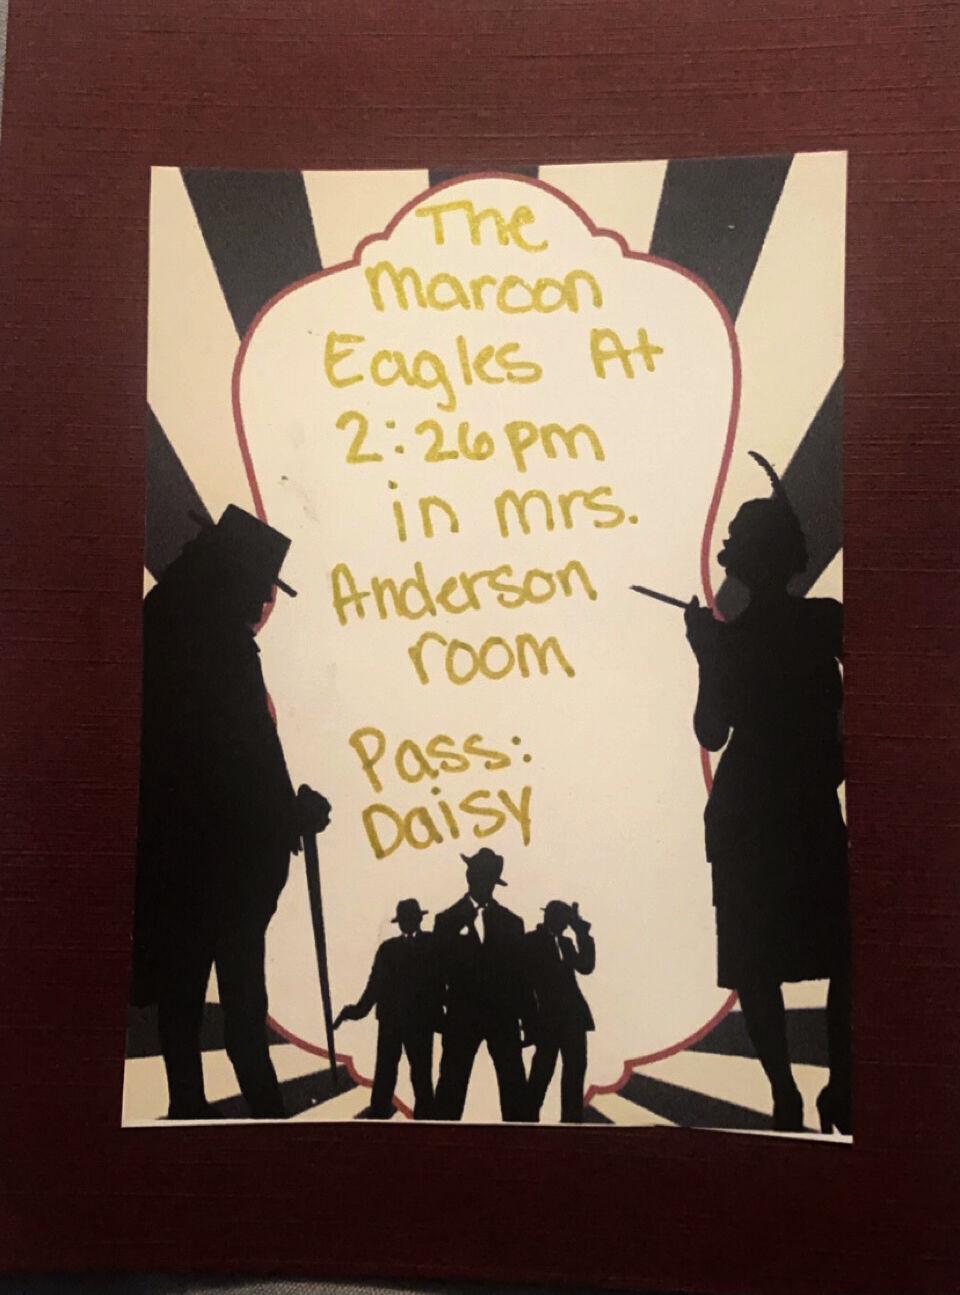 The
Maroon
Eagles At
2:26pm
in mrs.
Anderson
room
Pass:
Daisy